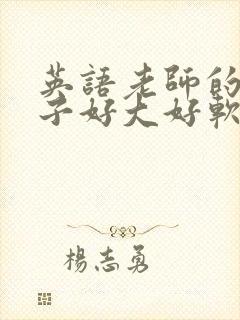 英語老師的
子好大好軟
楊志勇